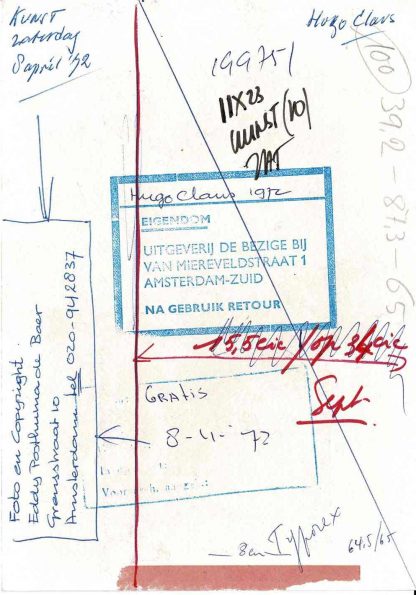 KUNST
zaterdag
8 april '72
Hugo Claus
199751
11X23
KUNST (10)
ZAT
100
39,2 – 87,3 – 65
Hugo Claus 1972
EIGENDOM
UITGEVERIJ DE BEZIGE BIJ
VAN MIEREVELDSTRAAT 1
AMSTERDAM-ZUID
NA GEBRUIK RETOUR
15,5 cic / op 34 cic
Sept.
GRATIS
8-4-'72
Foto en Copyright
Eddy Posthuma de Boer
Grensstraat 10
Amsterdam tel 020-942837
8 en Typorex
64.5/65